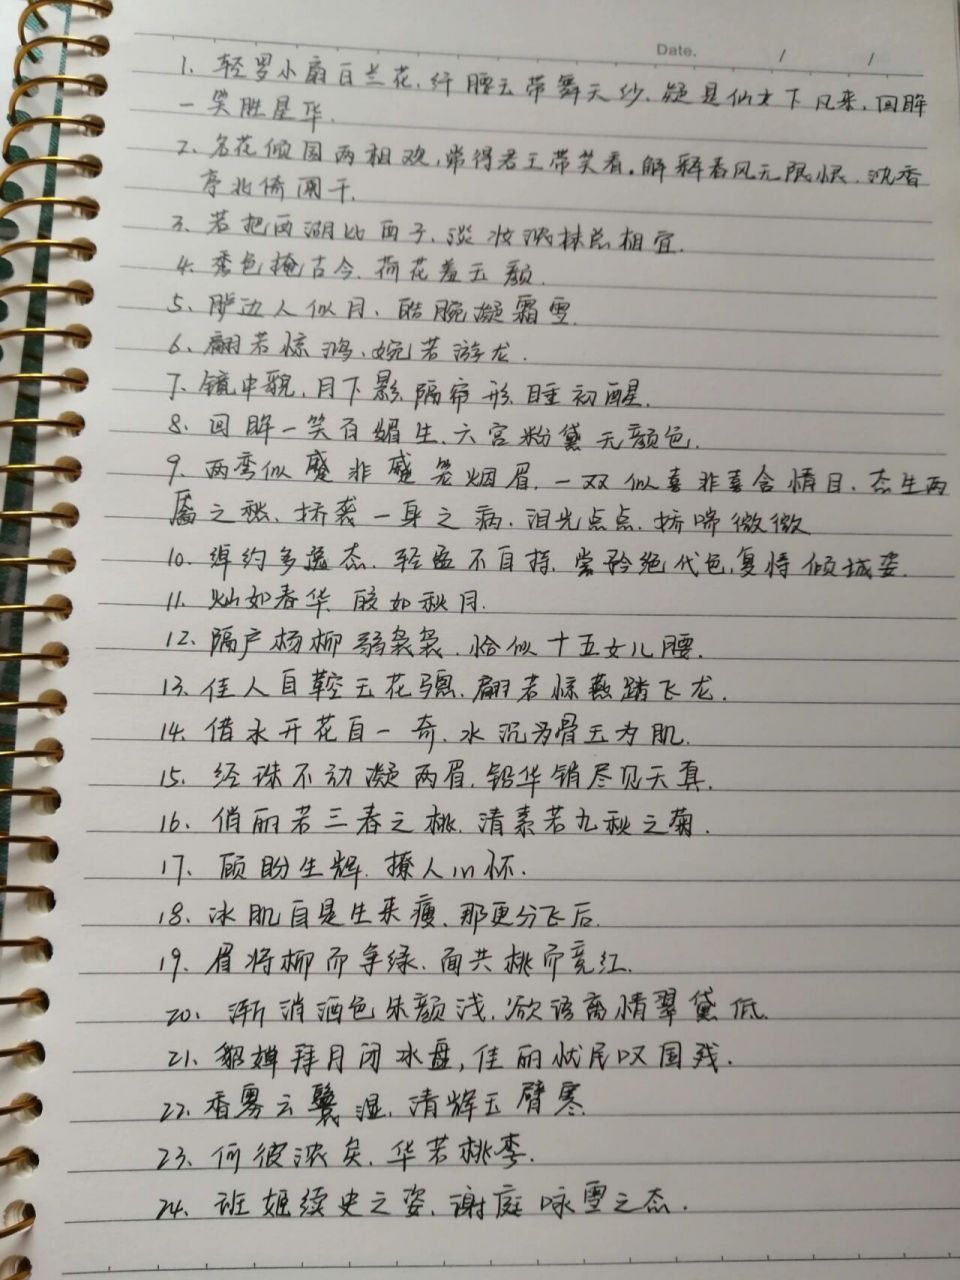 Date. / /
1、轻罗小扇白兰花,纤腰玉带舞天纱,疑是仙女下凡来,回眸
一笑胜星华.
2、名花倾国两相欢,常得君王带笑看。解释春风无限恨,沈香
亭北倚阑干.
3、若把西湖比西子,淡妆浓抹总相宜.
4、秀色掩古今,荷花羞玉颜.
5、垆边人似月,皓腕凝霜雪.
6、翩若惊鸿、婉若游龙.
7、镜中貌,月下影,隔帘形,睡初醒.
8、回眸一笑百媚生,六宫粉黛无颜色.
9、两弯似蹙非蹙笼烟眉,一双似喜非喜含情目、态生两
靥之愁,娇袭一身之病.泪光点点.娇喘微微
10、绰约多逸态,轻盈不自持,尝矜绝代色,复恃倾城姿.
11、灿如春华,皎如秋月.
12、隔户杨柳弱袅袅,恰似十五女儿腰.
13、佳人自鞚玉花骢,翩若惊燕踏飞龙.
14、借水开花自一奇,水沉为骨玉为肌.
15、经珠不动凝两眉,铅华销尽见天真.
16、俏丽若三春之桃,清素若九秋之菊.
17、顾盼生辉,撩人心怀.
18、冰肌自是生来瘦、那更分飞后.
19、眉将柳而争绿,面共桃而竞红.
20、渐消酒色朱颜浅,欲语离情翠黛低.
21、貂蝉拜月闭冰盘,佳丽忧民叹国残.
22、香雾云鬟湿,清辉玉臂寒.
23、何彼浓矣,华若桃李.
24、班姬续史之姿,谢庭咏雪之态.